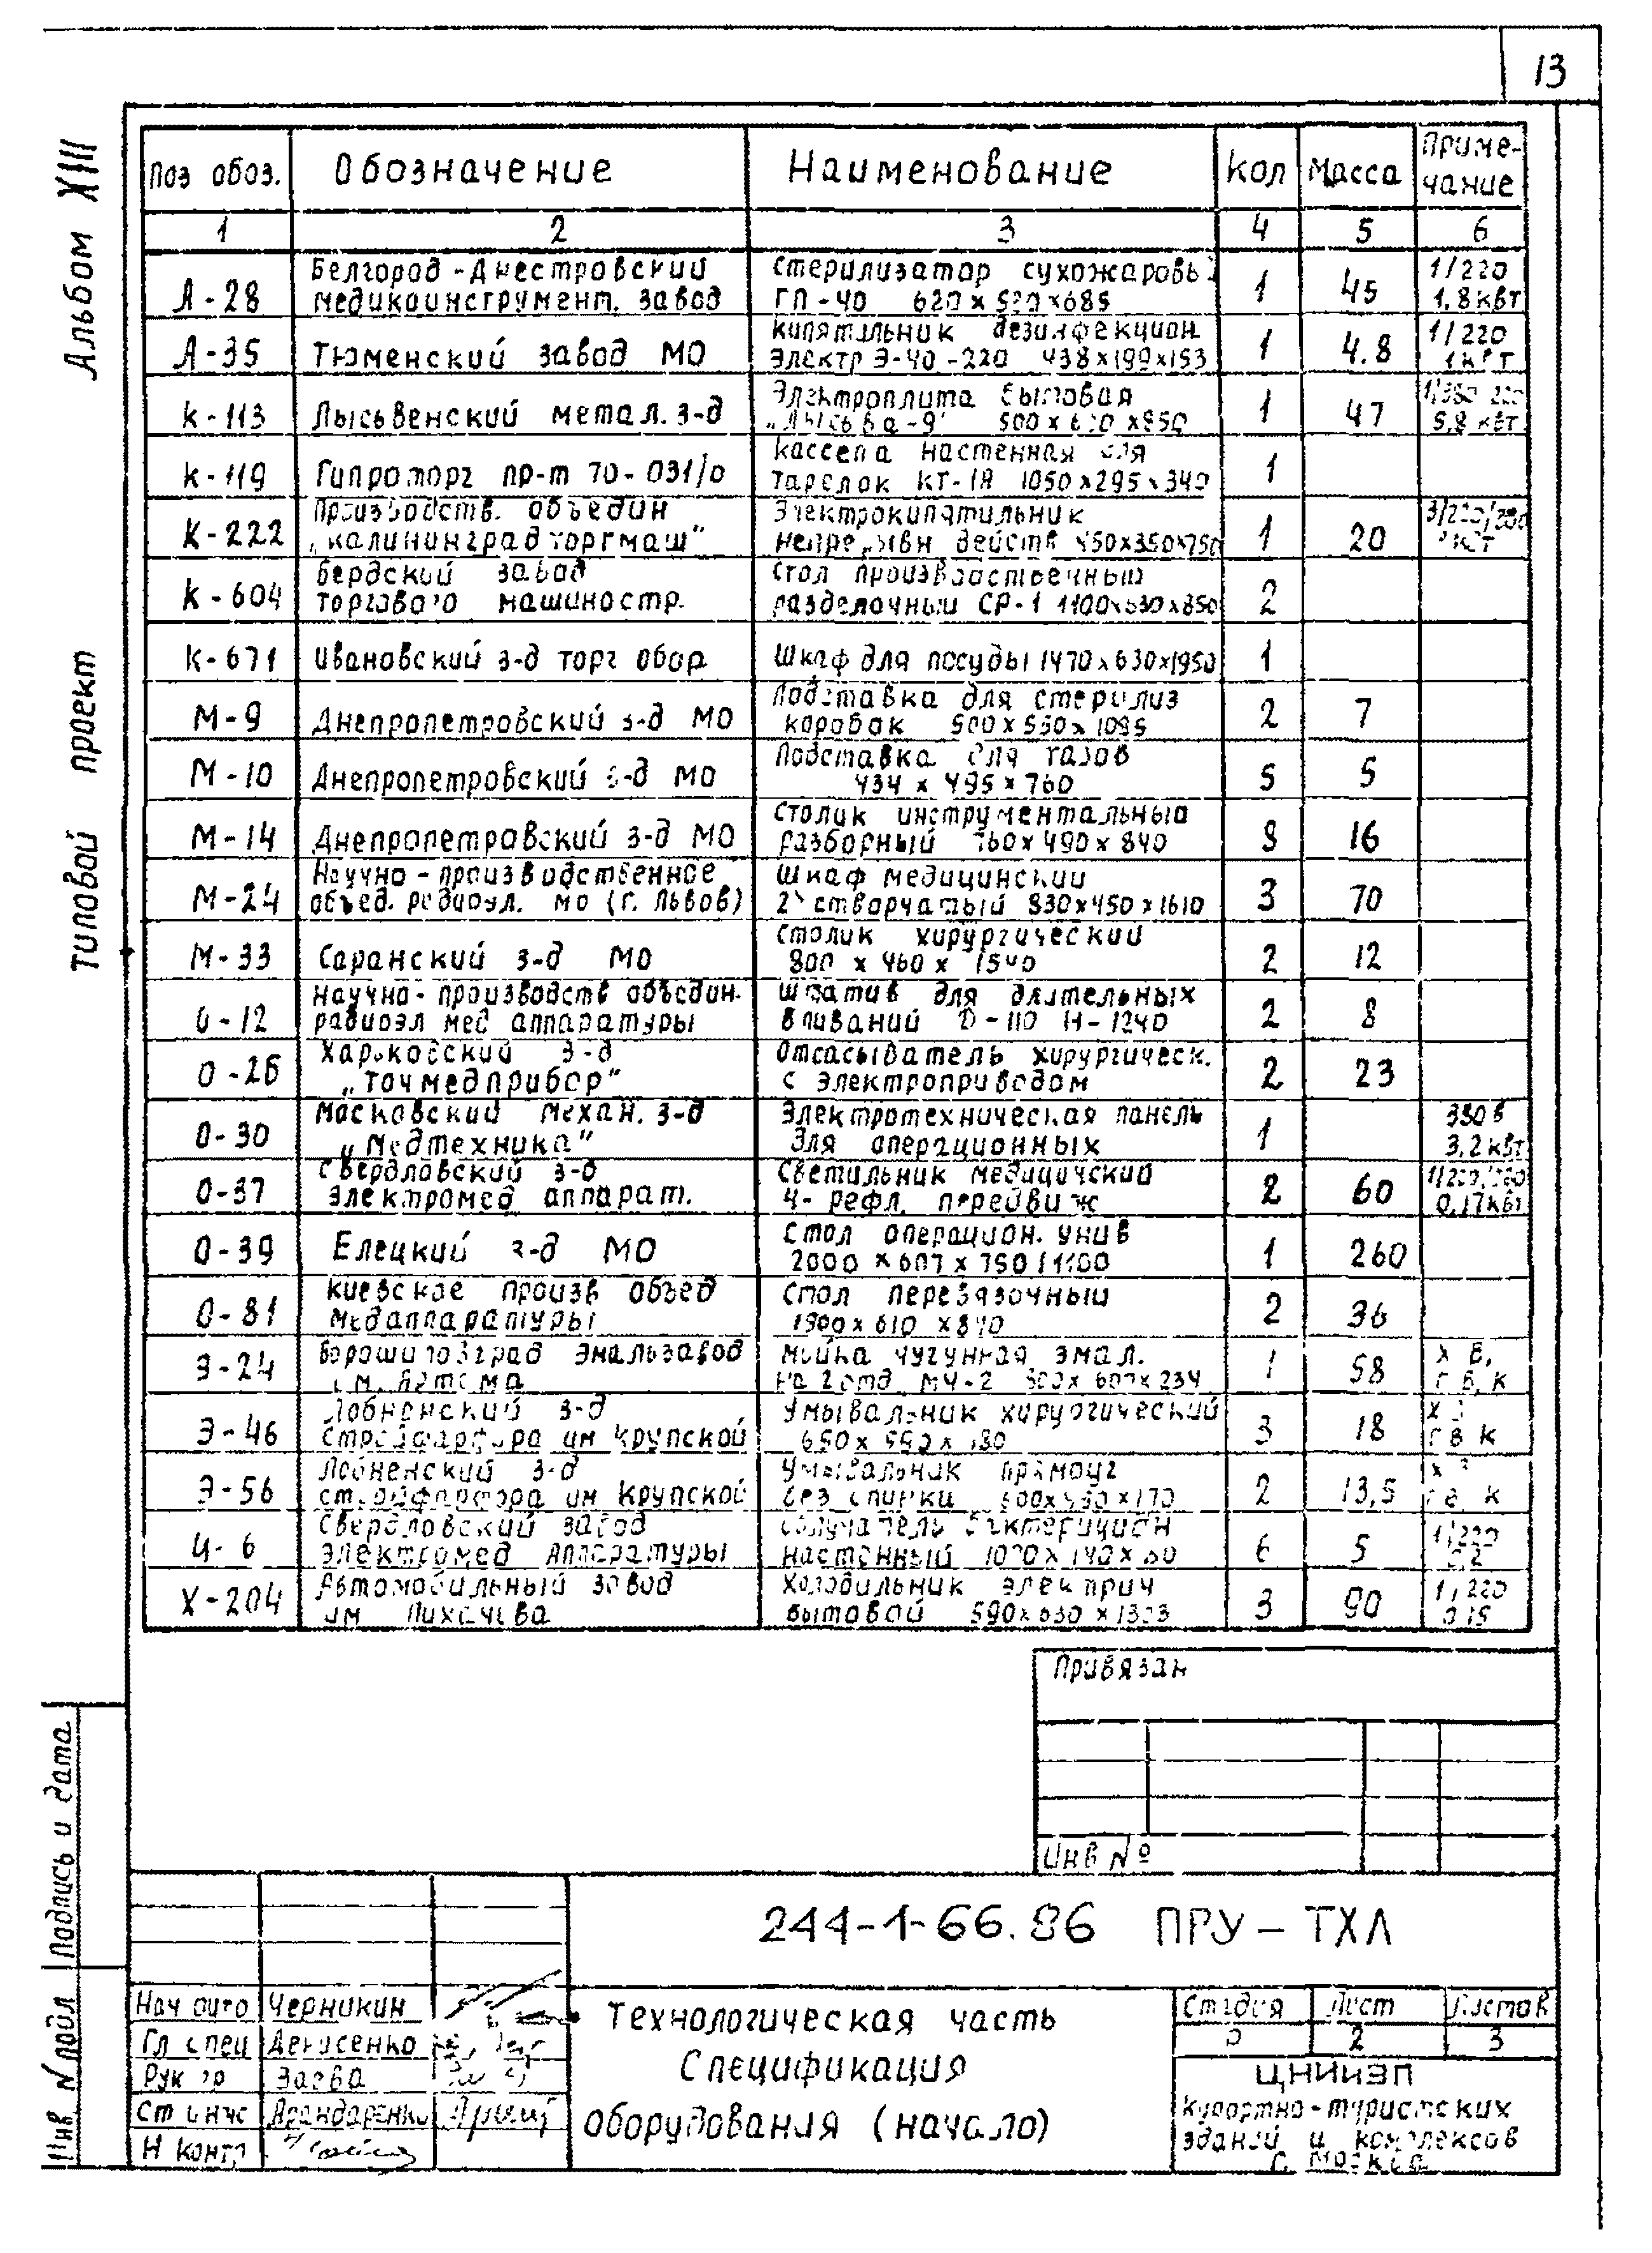 13
Альбом XIII
типовой проект
Поз обоз. Обозначение Наименование Кол Масса Приме-
чание
1 2 3 4 5 6
Белгород-Днестровский Стерилизатор сухожаровы 1/220
Л-28 медикоинструмент. завод ГП-40 620х520х685 1 45 1,8 квт
кипятильник дезинфекцион. 1/220
Л-35 Тюменский завод МО электр Э-40-220 438х199х153 1 4.8 1 квт
Электроплита бытовая 1/380 220
К-113 Лысьвенский метал. з-д „Лысьва-9" 500х600х850 1 47 5,8 квт
кассета настенная для
К-119 Гипроторг пр-т 70-031/0 тарелок КТ-1А 1050х295х340 1
Производств. объедин Электрокипятильник
К-222 „калининградторгмаш" непрерывн действ 450х350х750 1 20
бердский завод Стол производственный
К-604 торгового машиностр. разделочный СР-1 1100х630х850 2
К-671 Ивановский з-д торг обор Шкаф для посуды 1470х630х1950 1
Подставка для стерилиз
М-9 Днепропетровский з-д МО коробок 500х550х1095 2 7
Подставка для тазов
М-10 Днепропетровский з-д МО 434х495х760 5 5
Столик инструментальный
М-14 Днепропетровский з-д МО разборный 760х490х840 8 16
Научно-производственное Шкаф медицинский
М-24 объед. радиоэл. мо (г. Львов) 2х створчатый 830х450х1610 3 70
Столик хирургический
М-33 Саранский з-д МО 800 х 460 х 1540 2 12
Научно-производств объедин. штатив для длительных
О-12 радиоэл мед аппаратуры вливаний D-110 Н-1240 2 8
Харьковский з-д Отсасыватель хирургическ.
О-26 „Точмедприбор" с электроприводом 2 23
Московский механ. з-д Электротехническая панель 380 в
О-30 „Медтехника" для операционных 1 3,2 квт
Свердловский з-д Светильник медицинский
О-37 электромед аппарат. 4-рефл. передвиж 2 60 0,17 квт
Стол операцион. унив
О-39 Елецкий з-д МО 2000х607х750/1100 1 260
киевское произв объед Стол перевязочный
О-81 медаппаратуры 1900х610х840 2 36
Ворошиловград эмальзавод мойка чугунная эмал. х в,
Э-24 им. Артема на 2 отд МЧ-2 800х600х234 1 58 г в, к
Лобненский з-д Умывальник хирургический
Э-46 стройфарфора им Крупской 650х550х180 3 18 г в к
Лобненский з-д Умывальник прямоуг
Э-56 стройфарфора им Крупской без спинки 600х450х170 2 13,5 г в к
Свердловский завод облучатель бактерицидн 1/220
Ц-6 электромед аппаратуры настенный 1 6 5
Автомобильный завод Холодильник электрич 1/220
Х-204 им Лихачева бытовой 590х630х 3 90 0,15
Привязан
Инв №
244-1-66.86 ПРУ-ТХЛ
Нач Черникин
Гл спец Денисенко
Рук гр Заева
Ст инж Арандаренко
Н контр
Технологическая часть
Спецификация
оборудования (начало)
Стадия Лист Листов
Р 2 3
ЦНИИЭП
курортно-туристских
зданий и комплексов
г. Москва
Подпись и дата
Инв № подл